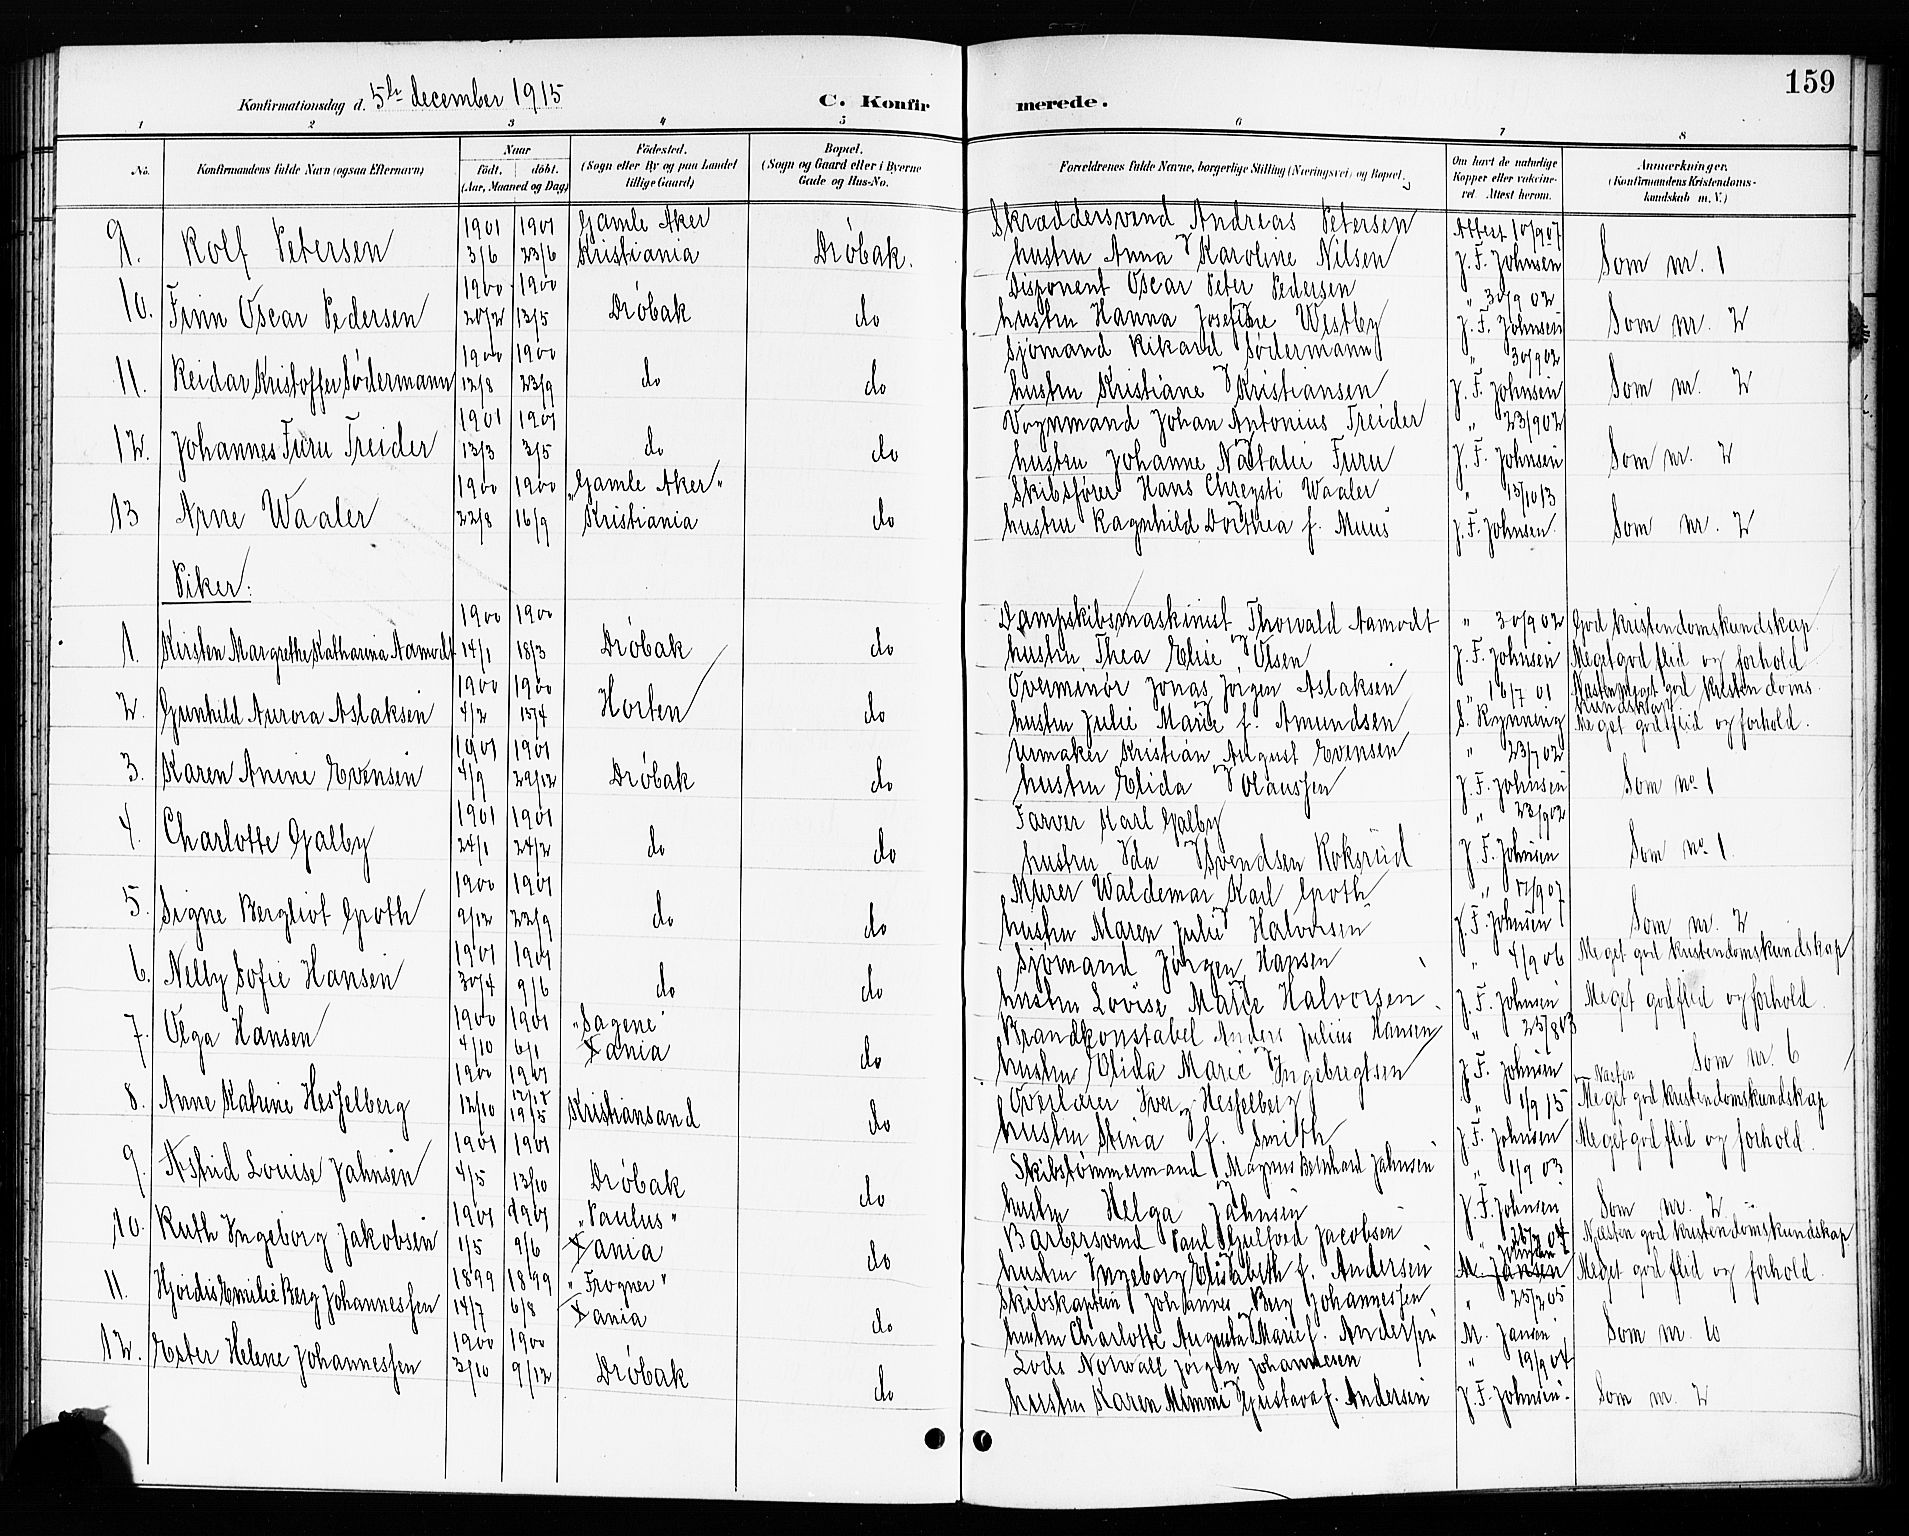 Konfirmationsdag d. 5te december 1915
C. Konfirmerede.
159
1 2 3 4 5 6 7 8
No.
Konfirmandens fulde Navn (ogsaa Efternavn)
Naar
födt. döbt.
(Aar, Maaned og Dag)
Födested.
(Sogn eller By og paa Landet
tillige Gaard)
Bopæl.
(Sogn og Gaard eller i Byerne
Gade og Hus-No.
Forældrenes fulde Navne, borgerlige Stilling (Næringsvei) og Bopæl.
Om havt de naturlige
Kopper eller vakcine-
ret. Attest herom.
Anmærkninger.
(Konfirmandens Kristendoms-
kundskab m. V.)
1901 1901 Gamle Aker Skræddersvend Andreas Petersen Attest 10/9 07
9. Rolf Petersen 3/6 23/6 Kristiania Drøbak. hustru Anna Karoline Nilsen J. F. Johnsen Som nr. 1
1900 1900 Disponent Oscar Peter Pedersen " 30/9 02
10. Finn Oscar Pedersen 20/2 13/5 Drøbak do hustru Hanna Josefine Westby J. F. Johnsen Som nr. 2
1900 1900 Sjømand Rikard Södermann " 30/9 02
11. Reidar Kristoffer Södermann 12/8 23/9 do do hustru Kristiane Kristiansen J. F. Johnsen Som nr. 2
1901 1901 Vognmand Johan Antonius Treider " 23/9 02
12. Johannes Furu Treider 13/3 3/5 do do hustru Johanne Natalie Furu J. F. Johnsen Som nr. 2
1900 1900 "Gamle Aker" Skibsfører Hans Chrysti Waaler " 13/10 13
13 Arne Waaler 22/8 16/9 Kristiania do hustru Ragnhild Dorthea f. Muus J. F. Johnsen. Som nr. 2
Piker:
1900 1900 Dampskibsmaskinist Thorvald Aamodt " 30/9 02 God kristendomskundskap
1. Kirsten Margrethe Katharina Aamodt 14/1 18/3 Drøbak do hustru Thea Elise Olsen J. F. Johnsen Meget god flid og forhold
1900 1900 Overminør Jonas Jørgen Aslaksen " 16/7 01 Næsten meget god kristendoms
2. Gunhild Aurora Aslaksen 4/2 15/4 Horten do hustru Julie Marie f. Amundsen S. Rynning kundskap Meget god flid og forhold.
1901 1901 Urmaker Kristian August Evensen " 23/7 02
3. Karen Anine Evensen 4/9 29/12 Drøbak do hustru Elida Olaussen J. F. Johnsen Som no. 1
1901 1901 Farver Karl Galby " 23/9 02
4. Charlotte Galby 24/1 24/2 do do hustru Ida Svendsen Roksrud J. F. Johnsen Som no. 1.
1900 1901 Murer Waldemar Karl Groth " 17/9 07
5. Signe Bergliot Groth 9/12 22/9 do do hustru Maren Julie Halvorsen J. F. Johnsen Som nr. 2
1901 1901 Sjømand Jørgen Hansen " 4/9 06 Meget god kristendomskundskap
6. Nelly Sofie Hansen 30/4 9/6 do do hustru Lovise Marie Halvorsen. J. F. Johnsen Meget god flid og forhold.
1900 1901 "Sagene" Brandkonstabel Anders Julius Hansen " 25/8 03
7. Olga Hansen 4/10 6/1 Xania do hustru Elida Marie Ingebregtsen J. F. Johnsen Som nr. 6
1900 1901 Overlærer Iver Hesselberg " 1/9 15 Næsten Meget god kristendomskundskap
8. Anne Katrine Hesselberg 12/10 19/5 Kristiansand do hustru Stina f. Smith J. F. Johnsen Meget god flid og forhold.
1901 1901 Skibstømmermand Magnus Bernhard Jahnsen " 1/9 03
9. Astrid Louise Jahnsen 4/5 13/10 Drøbak do hustru Helga Jahnsen J. F. Johnsen Som nr. 2
1901 1901 "Paulus" Barbersvend Paul Jacobsen " Næsten god kristendomskundskap
10. Ruth Ingeborg Jakobsen 1/5 9/6 Xania do hustru Ingeborg Elisabeth f. Andersen M. Jansen Johnsen Meget god flid og forhold.
1899 1899 "Frogner" Skibskaptein Johannes Berg Johannessen " 25/2 05
11. Hjördis Emilie Berg Johannessen 14/7 6/8 Xania do hustru Charlotte Augusta Marie f. Andersen M. Jansen Som nr. 10
1900 1900 Lods Norwall Jørgen Johannesen " 19/9 04
12. Ester Helene Johannessen 3/10 9/12 Drøbak do hustru Karen Mimmi Gustava f. Andersen J. F. Johnsen. Som nr. 2